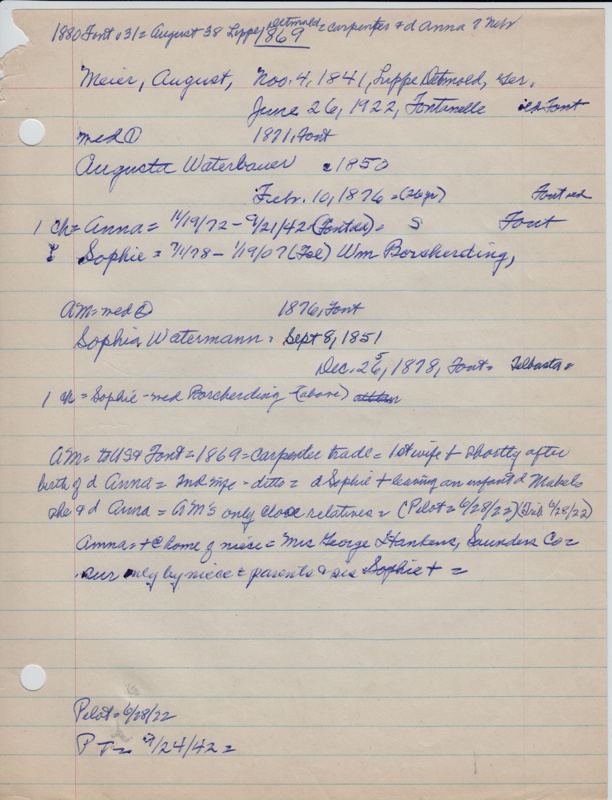 1880 Font #31 = August 38 Lippe Detmold = carpenter + d Anna 7 Nebr
1869
Meier, August, Nov. 4, 1841, Lippe Detmold, Ger.
June 26, 1922, Fontanelle Font
med ① 1871, Font
Augusta Waterbauer 1850
Febr. 10, 1876 = (26 yr) Font
1 ch = Anna = 11/19/72 - 9/21/42 (Font) = S Font
Sophie = 7/1/78 - 1/19/07 (Tel) Wm Borcherding,
AM = med ② 1876, Font
Sophia Watermann, Sept 8, 1851
Dec. 25, 1878, Font = Telbasta =
1 ch = Sophie - med Borcherding (above)
AM = to USA Font = 1869 = carpenter trade = 1st wife + shortly after
birth of d Anna = 2nd wife - ditto = d Sophie + leaving an infant d Mabel
she + d Anna = AM's only close relatives = (Pilot = 6/28/22) (Trib 6/28/22)
Anna = + @ home of niece = Mrs George Hankens, Saunders Co =
sur only by niece = parents + sis Sophie + =
Pilot = 6/28/22
P T = 9/24/42 =